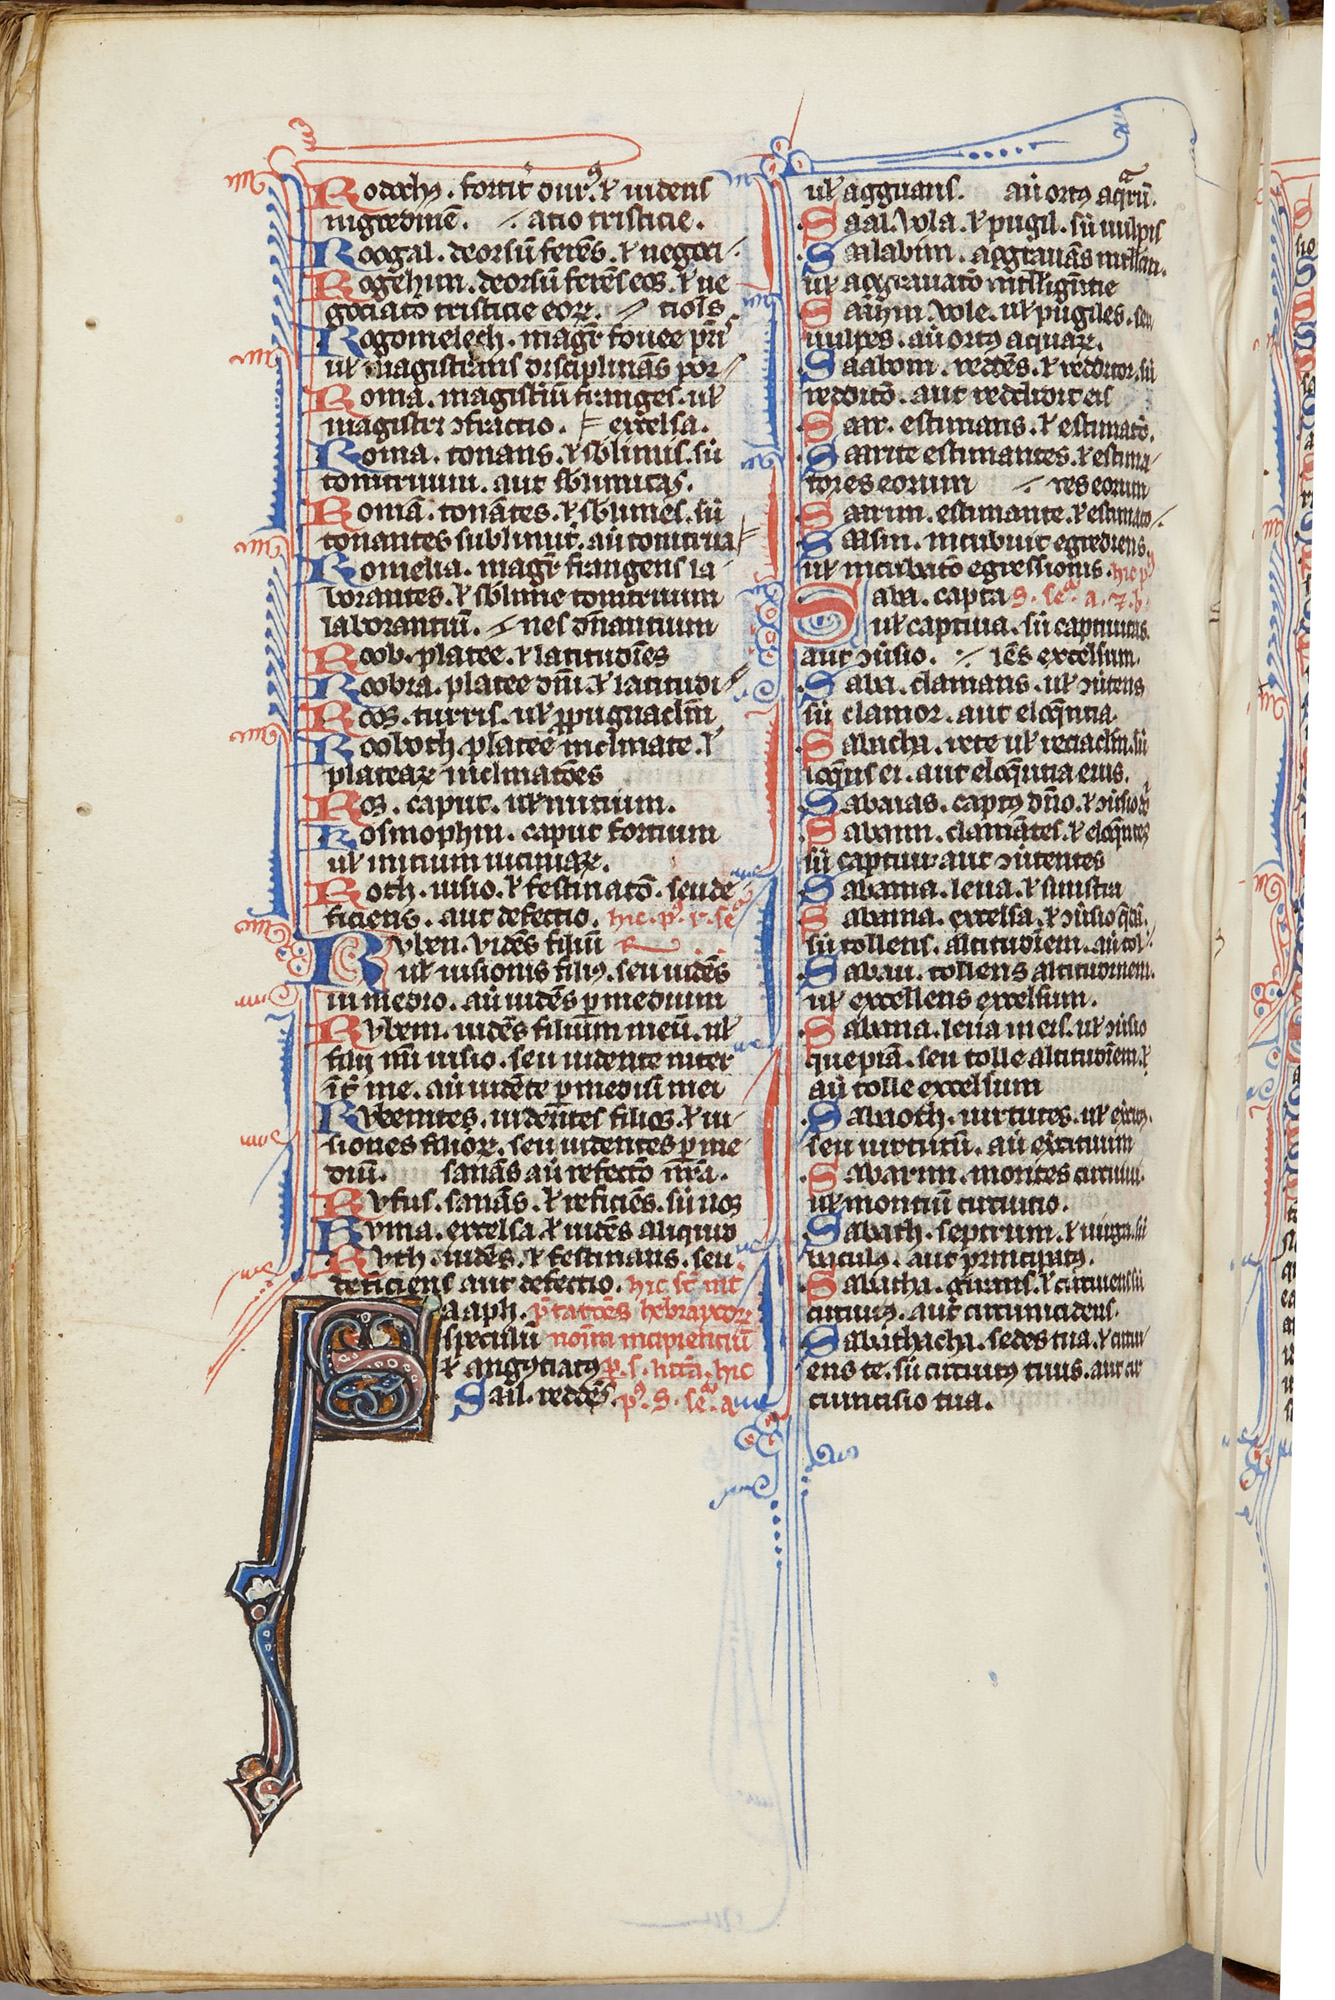 Rodochꝰ. fortit᷑ durꝰ. ⁊ uidens
nigredinē. ⸓ atio tristicie.
Roogal. deorsū ferēs. ⁊ negoci⸗
Rogehim. deorsū ferēs eos. ⁊ ne
gociatō tristicie eoꝝ. ⸓ tiōis
Rogomelech. magr̄ fouee pr̄i
uł magistrans disciplinās por⸗
Roma. magistriū franges. uł
magistri ↄfractio. excelsa.
Roma. tonans. ⁊ sb̄limis. siū
tonitruum. aut sb̄limitas.
Romā. tonātes. ⁊ sb̄limes. siū
tonantes sublimit᷑. aū tonitrua
Romelia. magr̄ frangens la
borantes. ⁊ sb̄lime tonitruum
laborantiū. ⸓ nes dn̄antium
Roob. platee. ⁊ latitudīes
Roobra. platee dn̄i. ⁊ latitudi⸗
Ros. turris. uł ꝓpugnaclm̄
Rooboth. platee inclinate. ⁊
plateaꝝ inclinatōes
Ros. caput. uł initium.
Rosmophin. caput fortium
uł initium uiciniaꝝ.
Roth. uisio. ⁊ festinatō. seu de⸗
ficiens. aut defectio. hic. pꝰ. r. seq̄
Ruben. uidēs filiū R
uł uisionis filiꝰ. seu uidēs
in medio. aū uidēs ꝑ medium
Rubeni. uidēs filium meū. uł
filij mī uisio. seu uidente inter
īt᷑ me. aū uidēte ꝑ mediū mei
Rubenites. uidentes filios. ⁊ ui⸗
siones filioꝝ. seu uidentes ꝑ me⸗
diū. sanās aū refectō nr̄a.
Rufus. sanās. ⁊ reficiēs. siū nos
Ruma. excelsa ⁊ uidēs aliquid
Ruth. uidēs. ⁊ festinans. seu
deficiens aut defectio. hic st̄ int᷑
Saaph. p̄tatōēs hebraycoꝝ
speculū noīm incipientiū
⁊ angustiatꝰ p. s. litt̄a. hic
Sail. reddēs. pꝰ. S. seq̄. a
uł aggrans. aū ortꝰ aquaꝝ.
Saal. Vola. ⁊ pugil. siū uulpis
Sailabim. aggrauās intellectū.
uł aggrauatō intelligētie
Saalim Vole. uł pugiles. seu
uulpes. aū ortꝰ aquaꝝ.
Saabom. reddēs. ⁊ redditor. siū
redditō. aut reddidit eis
Saar. estimans. ⁊ estimatō.
Saarite estimantes. ⁊ estima⸗
tores eorum ⸓ res eorum
Saarim. estimante. ⁊ estimato⸗
Sasim. incubuit egrediens.
uł incubatō egressionis. hic pꝰ
Saba. capta S. seq̄. a. ⁊. b.
uł captiua. siū captiuitas.
aut ↄ̄uisio. ⸓ iēs excelsum.
Saba. clamans. uł ↄ̄u̇tens
siū clamor. aut eloq̄ntia.
Sabacha. rete uł reciaclm̄. siū
loq̄ns ei. aut eloq̄ntia eius.
Sabaias. captꝰ dn̄o. ⁊ ↄ̄uisio dn̄i
Sabaim. clamātes. ⁊ eloq̄ntes
siū captiui. aut ↄ̄u̇tentes
Sabama. leua. ⁊ sinistra
Sabama. excelsa. ⁊ ↄ̄uisio q̄dā.
siū tollens. altitudīem. aū tol⸗
Saban. tollens altitudinem.
uł excellens excelsum.
Sabana. leua meis. uł ↄ̄uisio
quepiā. seu tolle altitudīem. ⁊
aū tolle excelsum
Sabaoth. uirtutes. uł exercitꝰ.
seu uirtutū. aū exercituum
Sabarim. montes circuitꝰ.
uł montiū circuitio.
Sabath. septrum. ⁊ uirga. siū
baculꝰ. aut p̄ncipatꝰ.
Sabatha. girans. ⁊ circuiens. siū
circuitꝰ. aut circumcidens.
Sabathacha. sedes tua. ⁊ circui⸗
ens te. siū circuitꝰ tuus. aut cir
cuncisio tua.